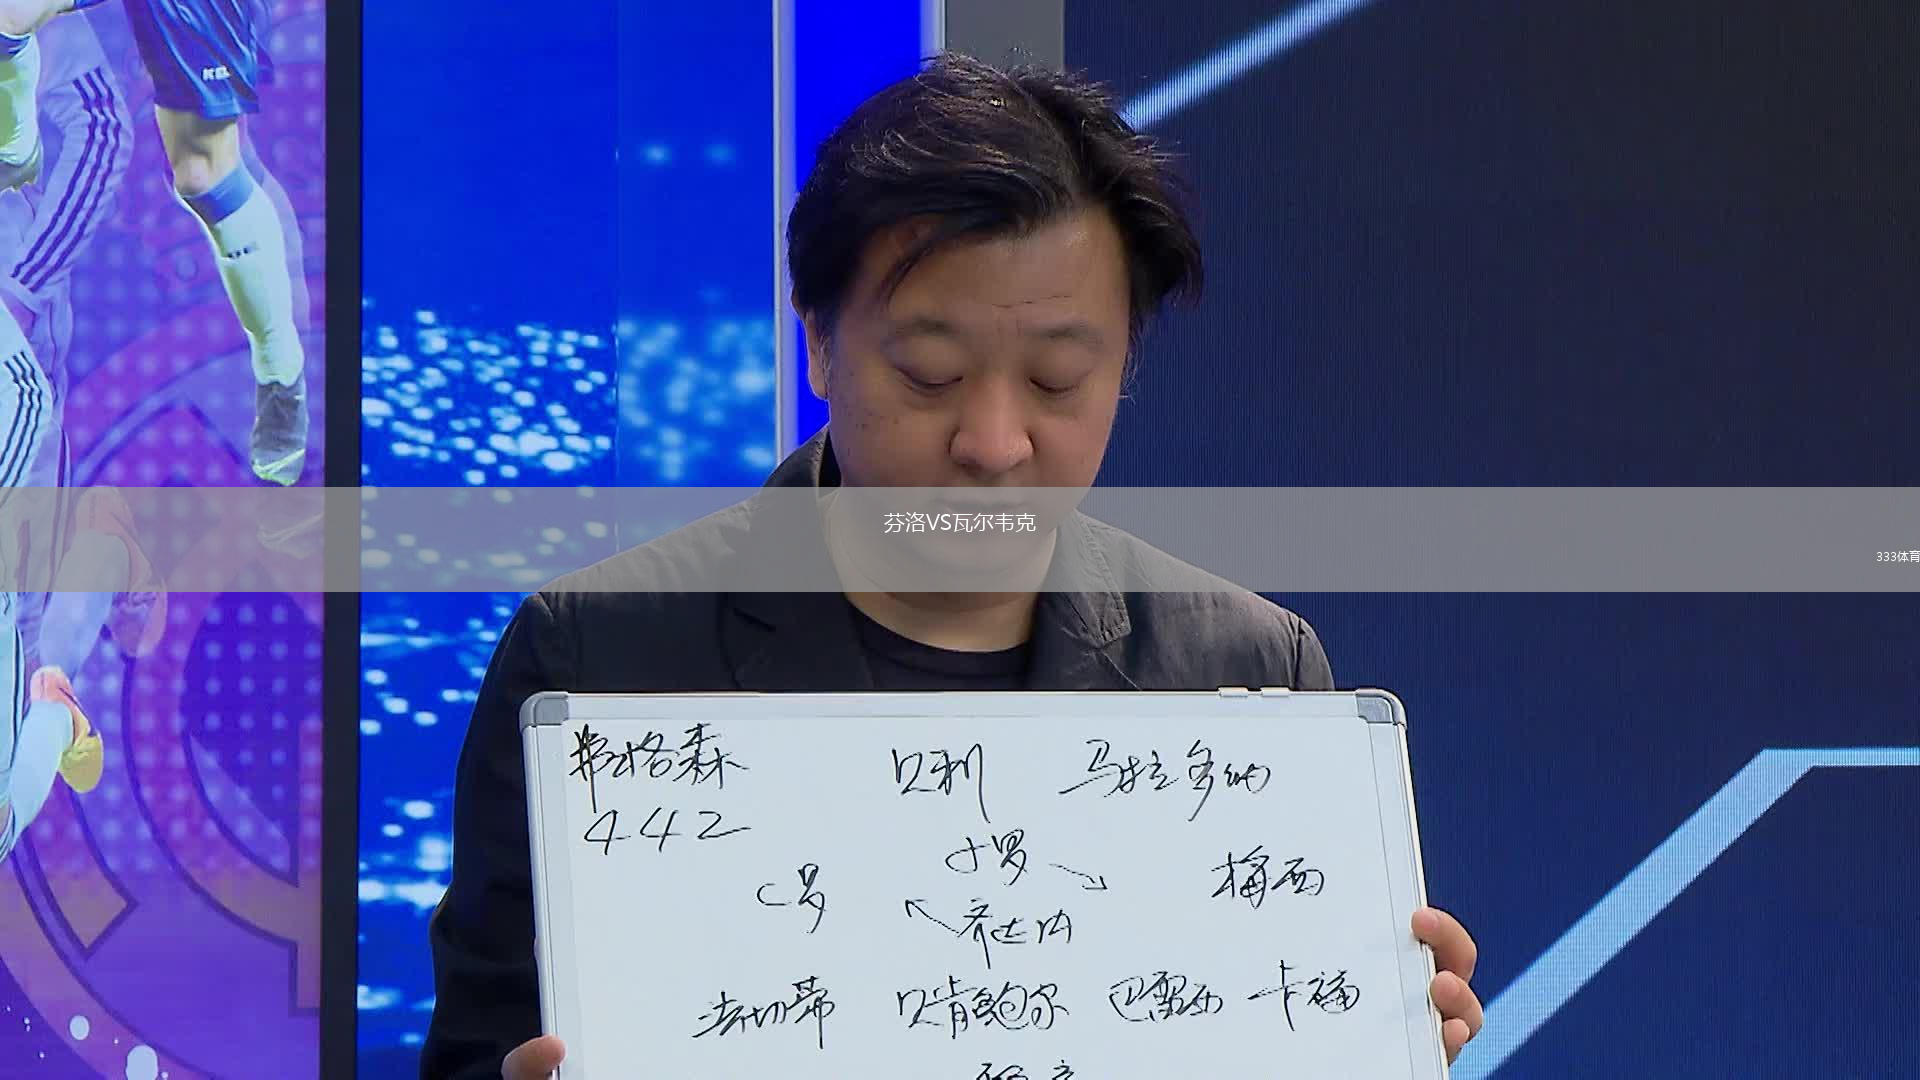 芬洛VS瓦尔韦克
333体育
弗格森 贝利 马拉多纳
442
小罗
C罗 梅西
齐达内
法切蒂 贝肯鲍尔 巴雷西 卡福